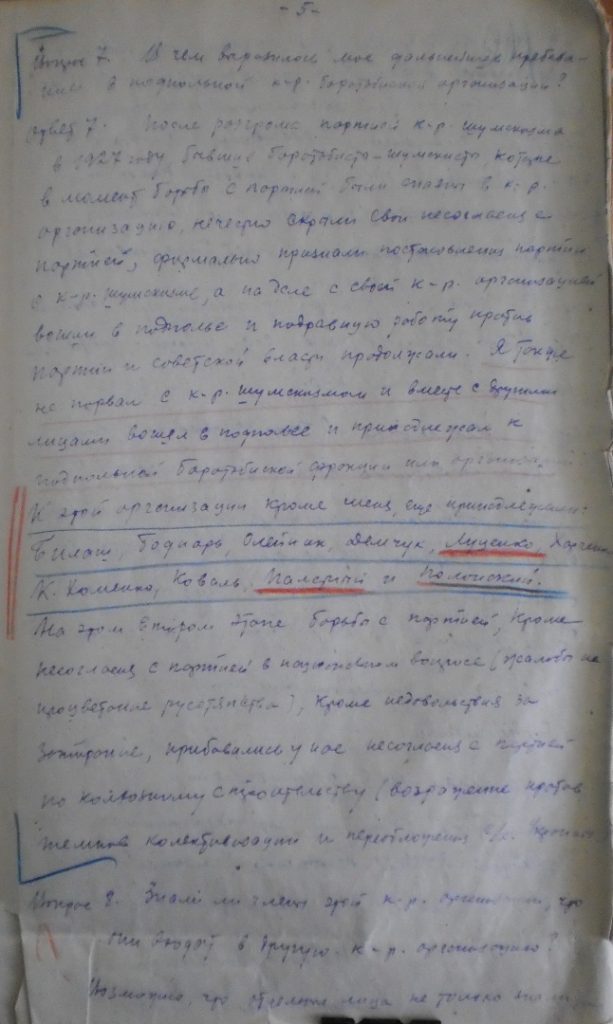 - 5 -
Вопрос 7. В чем выразилось мое дальнейшее пребыва-
ние в подпольной к-р. боротьбистской организации?
Ответ 7. После разгрома партией к-р. шумскизма
в 1927 году, бывшие боротьбисты-шумскисты, которые
в момент борьбы с партией были спаяны в к-р.
организацию, нечестно скрыли свои несогласия с
партией, формально признали постановления партии
о к-р. шумскизме, а на деле с своей к-р. организацией
вошли в подполье и подрывную работу против
партии и советской власти продолжали. Я тоже
не порвал с к-р. шумскизмом и вместе с другими
лицами вошел в подполье и принадлежал к
подпольной боротьбиской фракции или организации.
К этой организации кроме меня, еще принадлежали:
Билаш, Боднарь, Олейник, Демчук, Луценко,
К. Хоменко, Коваль, и Полонский.
На этом втором этапе борьбы с партией, кроме
несогласия с партией в национальном вопросе (жалобы на
процветание русотяпства), кроме недовольствия за
зажирание, прибавились у нас несогласия с партией
по колхозному строительству (возражение против
темпов колективизации и переобложения с/х. Украины
Вопрос 8. Знали ли члены этой к-р. организации, что
они входят в другую к-р. организацию?
Возможно, что отдельные лица не только знали,